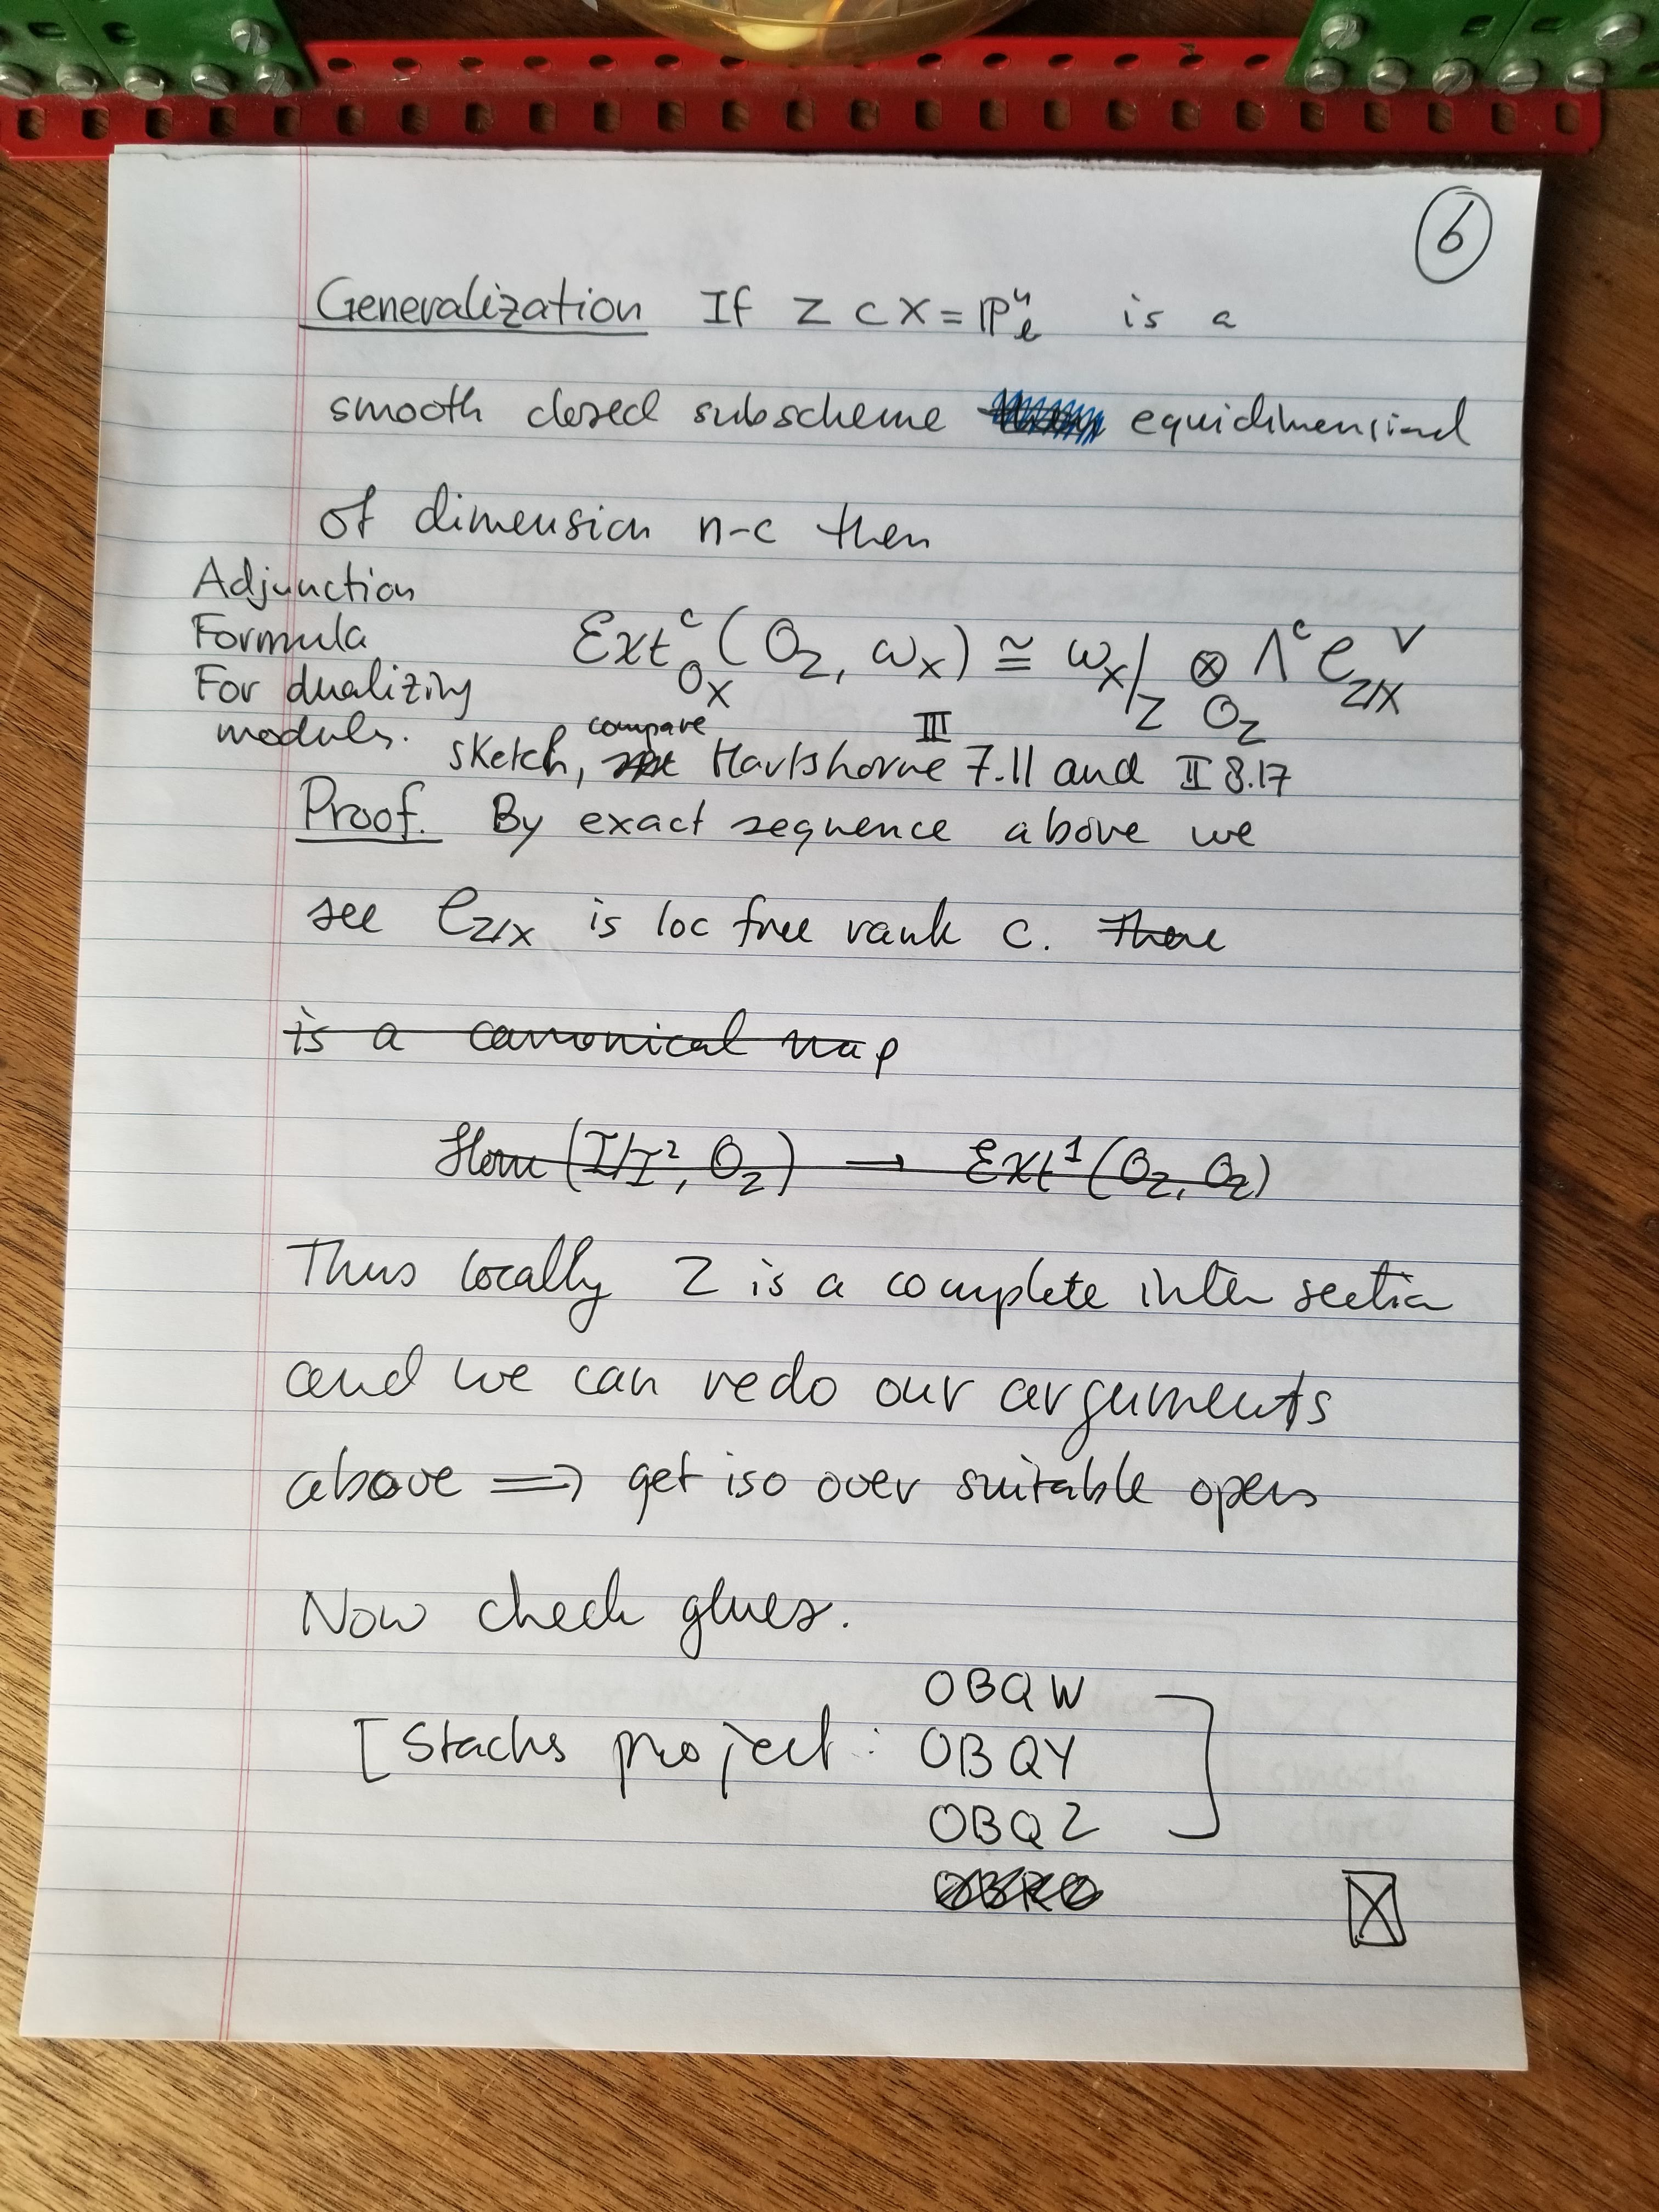 6
Generalization If Z ⊂ X = ℙⁿ_k is a
smooth closed subscheme equidimensional
of dimension n-c then
Adjunction
Formula
For dualizing
moduls.
Ext^c_{O_X}(O_Z, ω_X) ≅ ω_X|_Z ⊗_{O_Z} Λ^c C_{Z/X}^∨
sketch, compare Hartshorne III 7.11 and II 8.17
Proof. By exact sequence above we
see C_{Z/X} is loc free rank c. There
is a canonical map
Hom(I/I², O_Z) → Ext¹(O_Z, O_Z)
Thus locally Z is a complete intersection
and we can redo our arguments
above ⟹ get iso over suitable opens
Now check glues.
[Stacks project: 0BQW
0BQY
0BQZ ]
0BR0